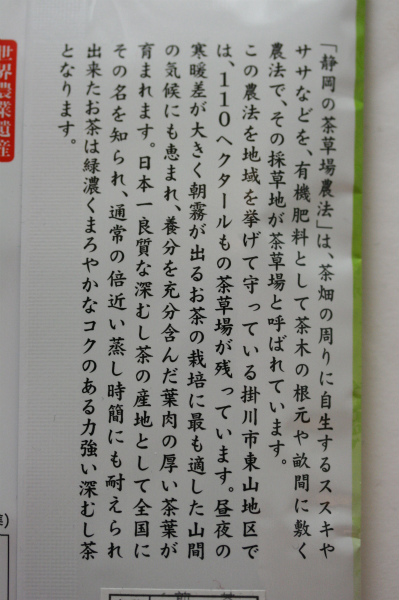 「静岡の茶草場農法」は、茶畑の周りに自生するススキや
ササなどを、有機肥料として茶木の根元や畝間に敷く
農法で、その採草地が茶草場と呼ばれています。
この農法を地域を挙げて守っている掛川市東山地区で
は、110ヘクタールもの茶草場が残っています。昼夜の
寒暖差が大きく朝霧が出るお茶の栽培に最も適した山間
の気候にも恵まれ、養分を充分含んだ葉肉の厚い茶葉が
育まれます。日本一良質な深むし茶の産地として全国に
その名を知られ、通常の倍近い蒸し時間にも耐えられ
出来たお茶は緑濃くまろやかなコクのある力強い深むし茶
となります。
世界農業遺産